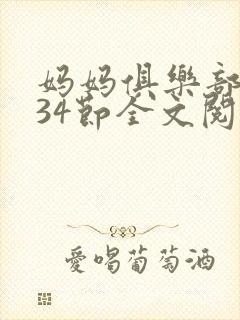 妈妈俱樂部
34節全文閱
愛喝葡萄酒